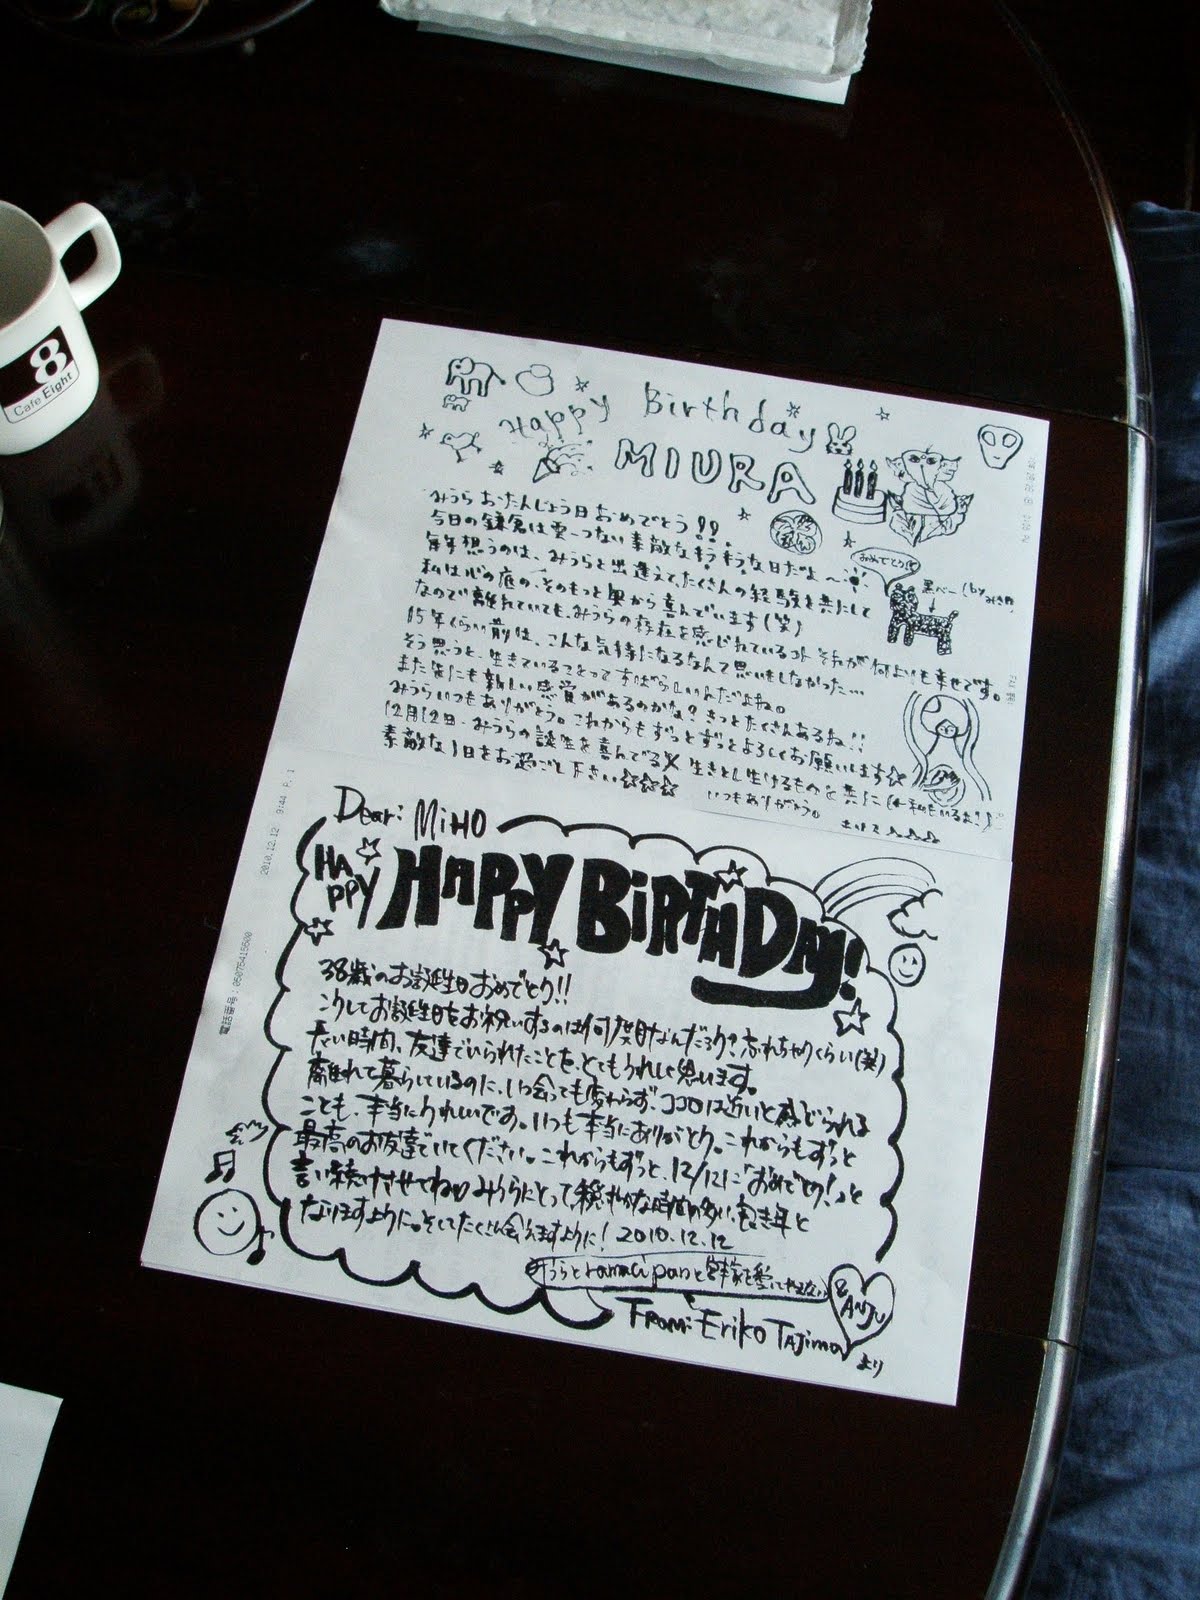 8
Cafe Eight
Happy Birthday
MIURA
みうら おたんじょう日 おめでとう!!
今日の鎌倉は雲一つない素敵なキラキラな日だよ〜
おめでとう
毎年想うのは、みうらと出逢えて、たくさんの経験を共にして
黒べー (by
私は心の底の、そのもっと奥から喜んでいます(笑)
なので離れていても、みうらの存在を感じれているコト それが何よりも幸せです。
15年くらい前は、こんな気持になるなんて思いもしなかった…
そう思うと、生きていることってすばらしいんだよね。
また先にも新しい感覚があるのかな?きっとたくさんあるね!!
みうらいつもありがとう。これからもずっとずっとよろしくお願いします☆
12月12日 みうらの誕生を喜んでる 生きとし生けるものと共に (私もいるよ!)♪
素敵な1日をお過ごし下さい☆☆☆
いつもありがとう。
2010.12.12 9:44 P. 1
電話番号:
Dear: MIHO
HAPPY
HAPPY BIRTHDAY!
38歳のお誕生日おめでとう!!
こうしてお誕生日をお祝いするのは何度目なんだろう?忘れちゃうくらい(笑)
長い時間、友達でいられたことを、とてもうれしく思います。
離れて暮らしているのに、いつ会っても変わらず、ココロは近いと感じられる
ことも、本当にうれしいです。いつも本当にありがとう。これからもずっと
最高のお友達でいてください。これからもずっと、12/12に「おめでとう!」と
言い続けさせてね みうらにとって、穏やかな時間の多い、1年と
なりますように。そしてたくさん会えますように! 2010.12.12
みうらと
を愛してやまない
& ANJU
FROM: Eriko Tajima
より